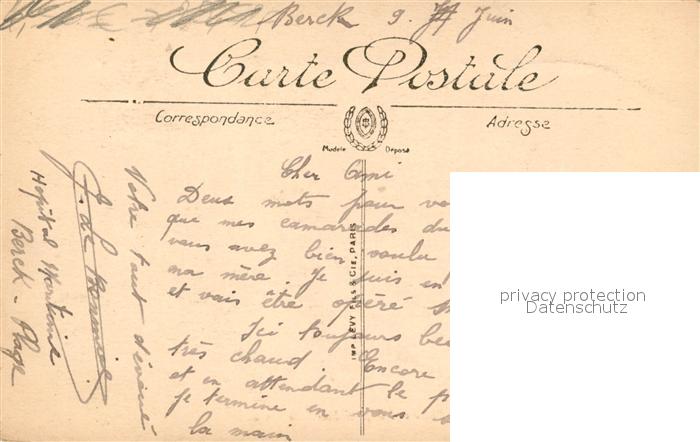 Berck 9. Juin
Carte Postale
Correspondance
Adresse
Modèle Déposé
Cher Ami
Deux mots pour
que mes camarades
vous avez bien voulu
ma mère. Je suis en
et vais être opéré
Ici toujours
très chaud. Encore
et en attendant le
je termine en vous
la main
Votre tout dévoué
Hôpital Maritime
Berck-Plage
IMP. LÉVY FILS & CIE, PARIS
privacy protection
Datenschutz